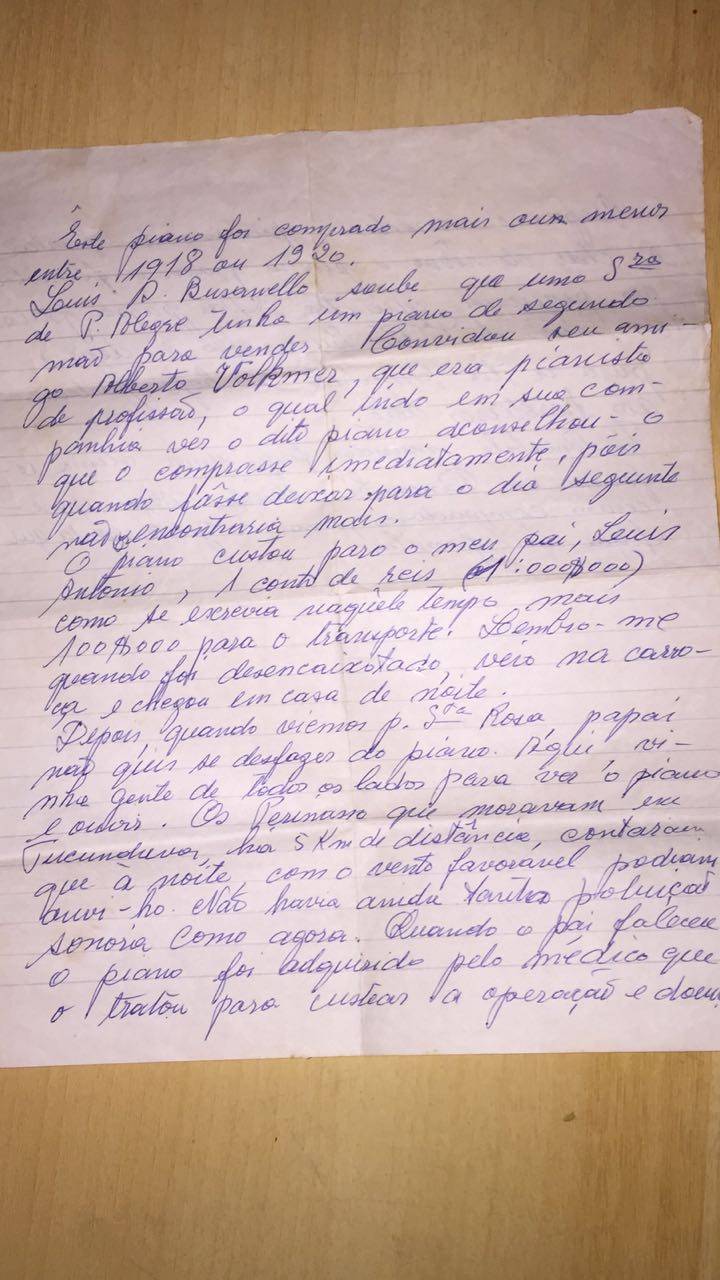 Êste piano foi comprado mais ou menos
entre 1918 ou 1920.
Louis A. Busanello soube que uma Sra
de P. Alegre tinha um piano de segunda
mão para vender. Convidou seu ami-
go Alberto Volkmer, que era pianista
de profissão, o qual indo em sua com-
panhia ver o dito piano aconselhou-o
que o comprasse imediatamente, pois
quando fôsse deixar para o dia seguinte
não encontraria mais.
O piano custou para o meu pai, Louis
Antonio, 1 conto de reis (1:000$000)
como se escrevia naquêle tempo, mais
100$000 para o transporte. Lembro-me
quando foi desencaixotado, veio na carro-
ça e chegou em casa de noite.
Depois, quando viemos p. Sta Rosa papai
não quis se desfazer do piano. Aqui vi-
nha gente de todos os lados para ver o piano
e ouvir. Os que moravam em
Tucunduva, há 5 Km de distância, contaram
que à noite com o vento favorável podiam
ouvi-lo. Não havia ainda tanta poluição
sonora como agora. Quando o pai faleceu
o piano foi adquirido pelo médico que
o tratou para custear a operação e doen